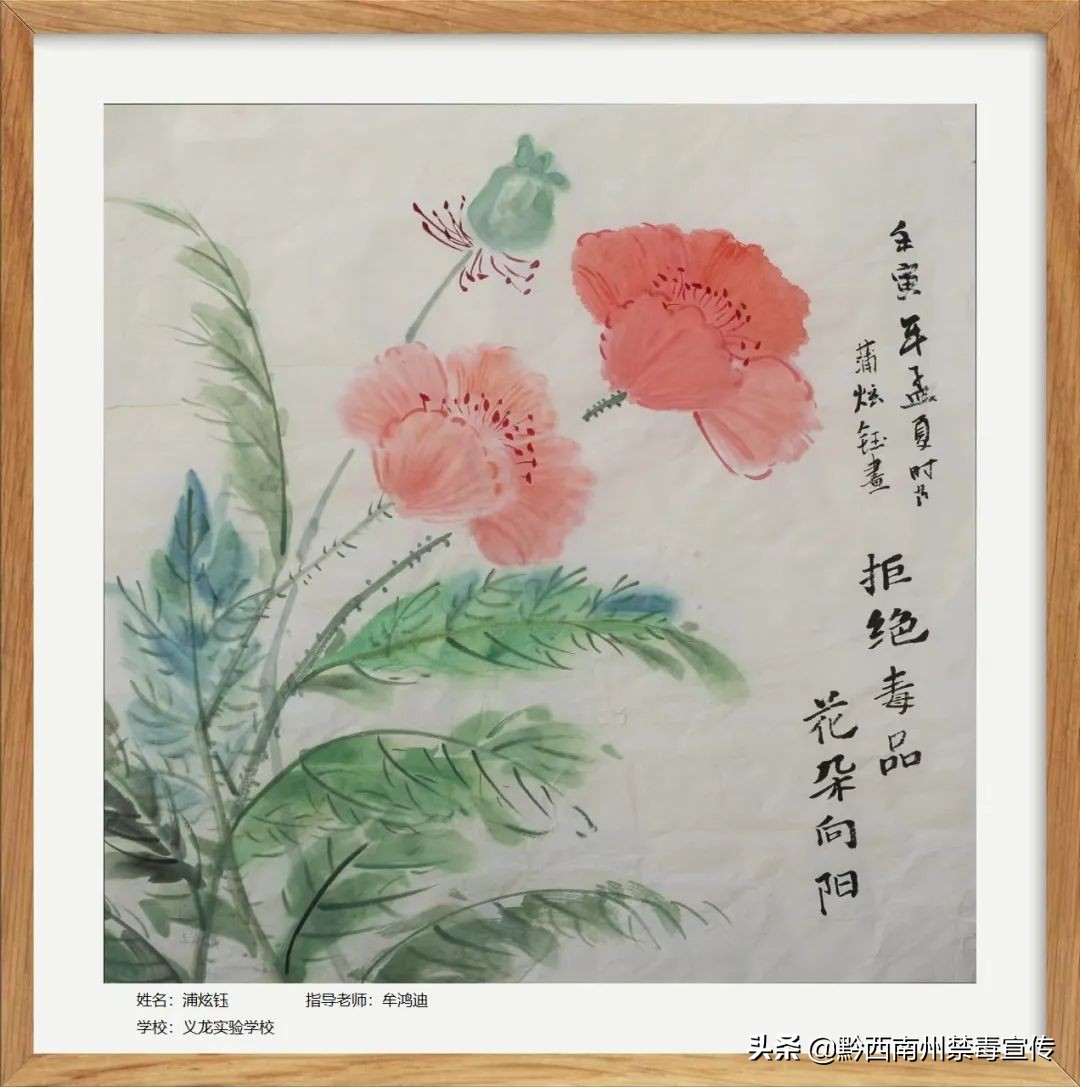 壬寅年孟夏时节
蒲炫钰畫
拒绝毒品
花朵向阳
姓名：浦炫钰
指导老师：牟鸿迪
学校：义龙实验学校
头条 @黔西南州禁毒宣传